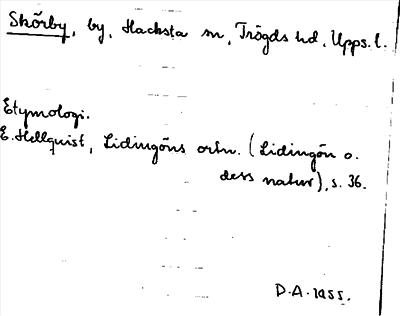 Skörby, by, Hacksta sn, Trögds hd, Upps. l.
Etymologi.
E. Hellquist, Lidingöns ortn. (Lidingön o.
dess natur), s. 36.
D.A. 1955.